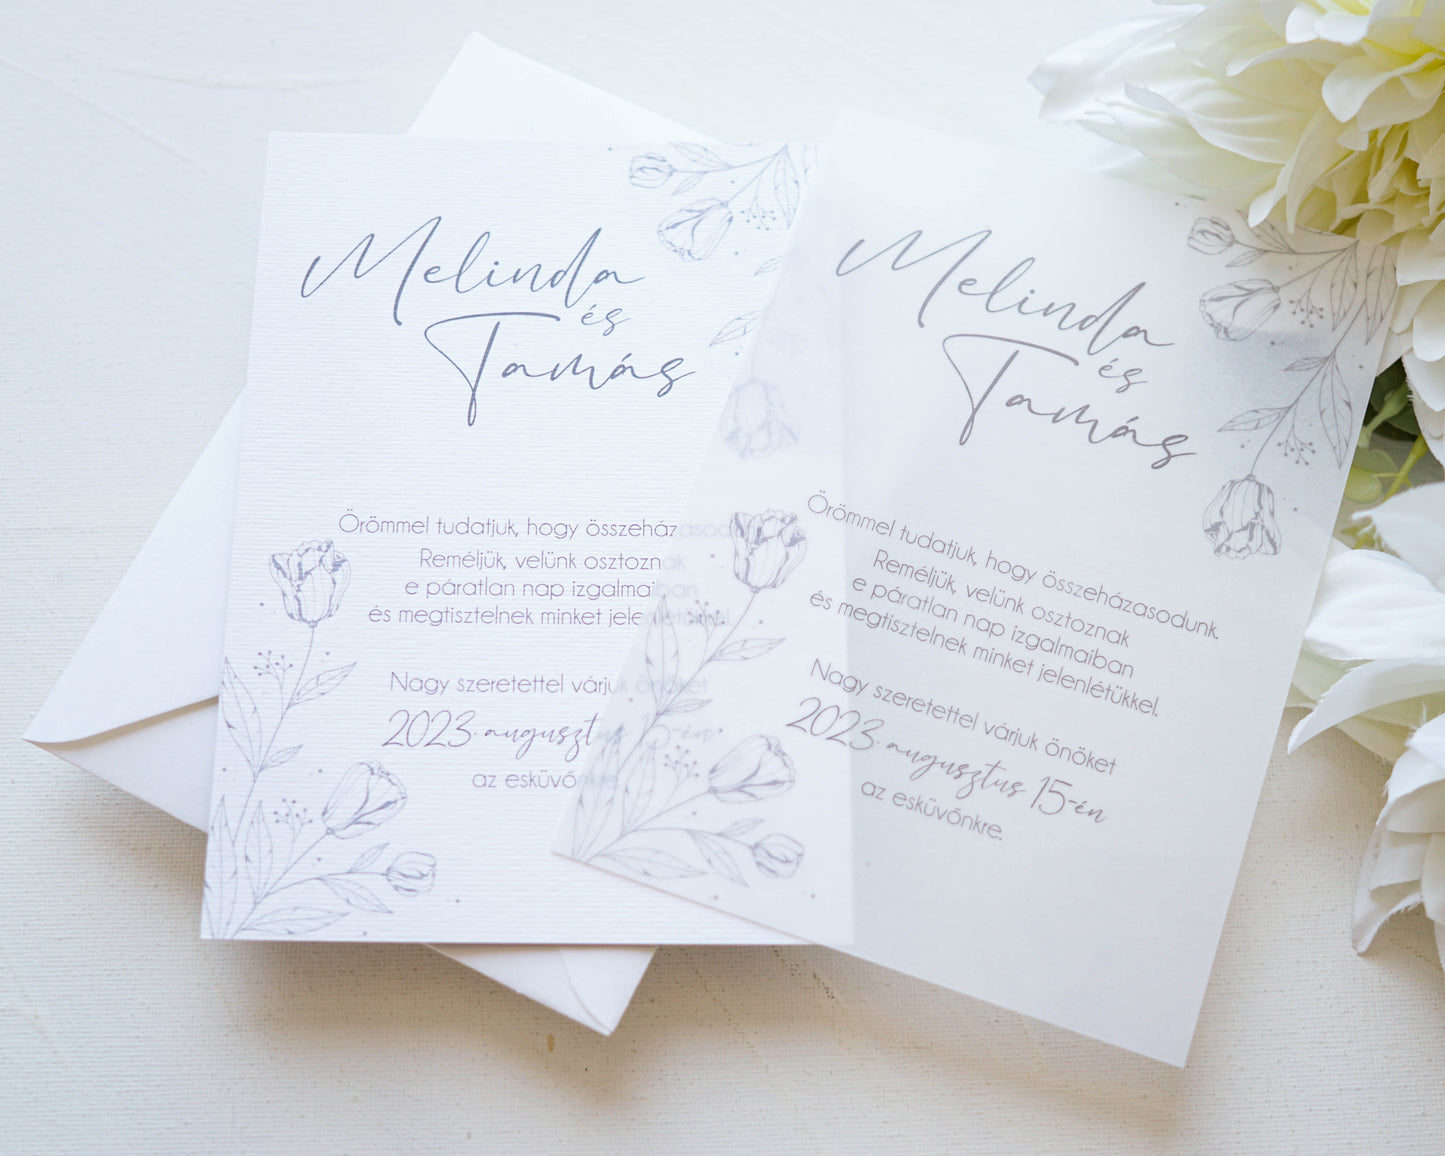 Melinda
és
Tamás
Örömmel tudatjuk, hogy összeházasodunk.
Reméljük, velünk osztoznak
e páratlan nap izgalmaiban
és megtisztelnek minket jelenlétükkel.
Nagy szeretettel várjuk önöket
2023. augusztus 15-én
az esküvőnkre.
Melinda
és
Tamás
Örömmel tudatjuk, hogy összeházasodunk.
Reméljük, velünk osztoznak
e páratlan nap izgalmaiban
és megtisztelnek minket jelenlétükkel.
Nagy szeretettel várjuk önöket
2023. augusztus 15-én
az esküvőnkre.